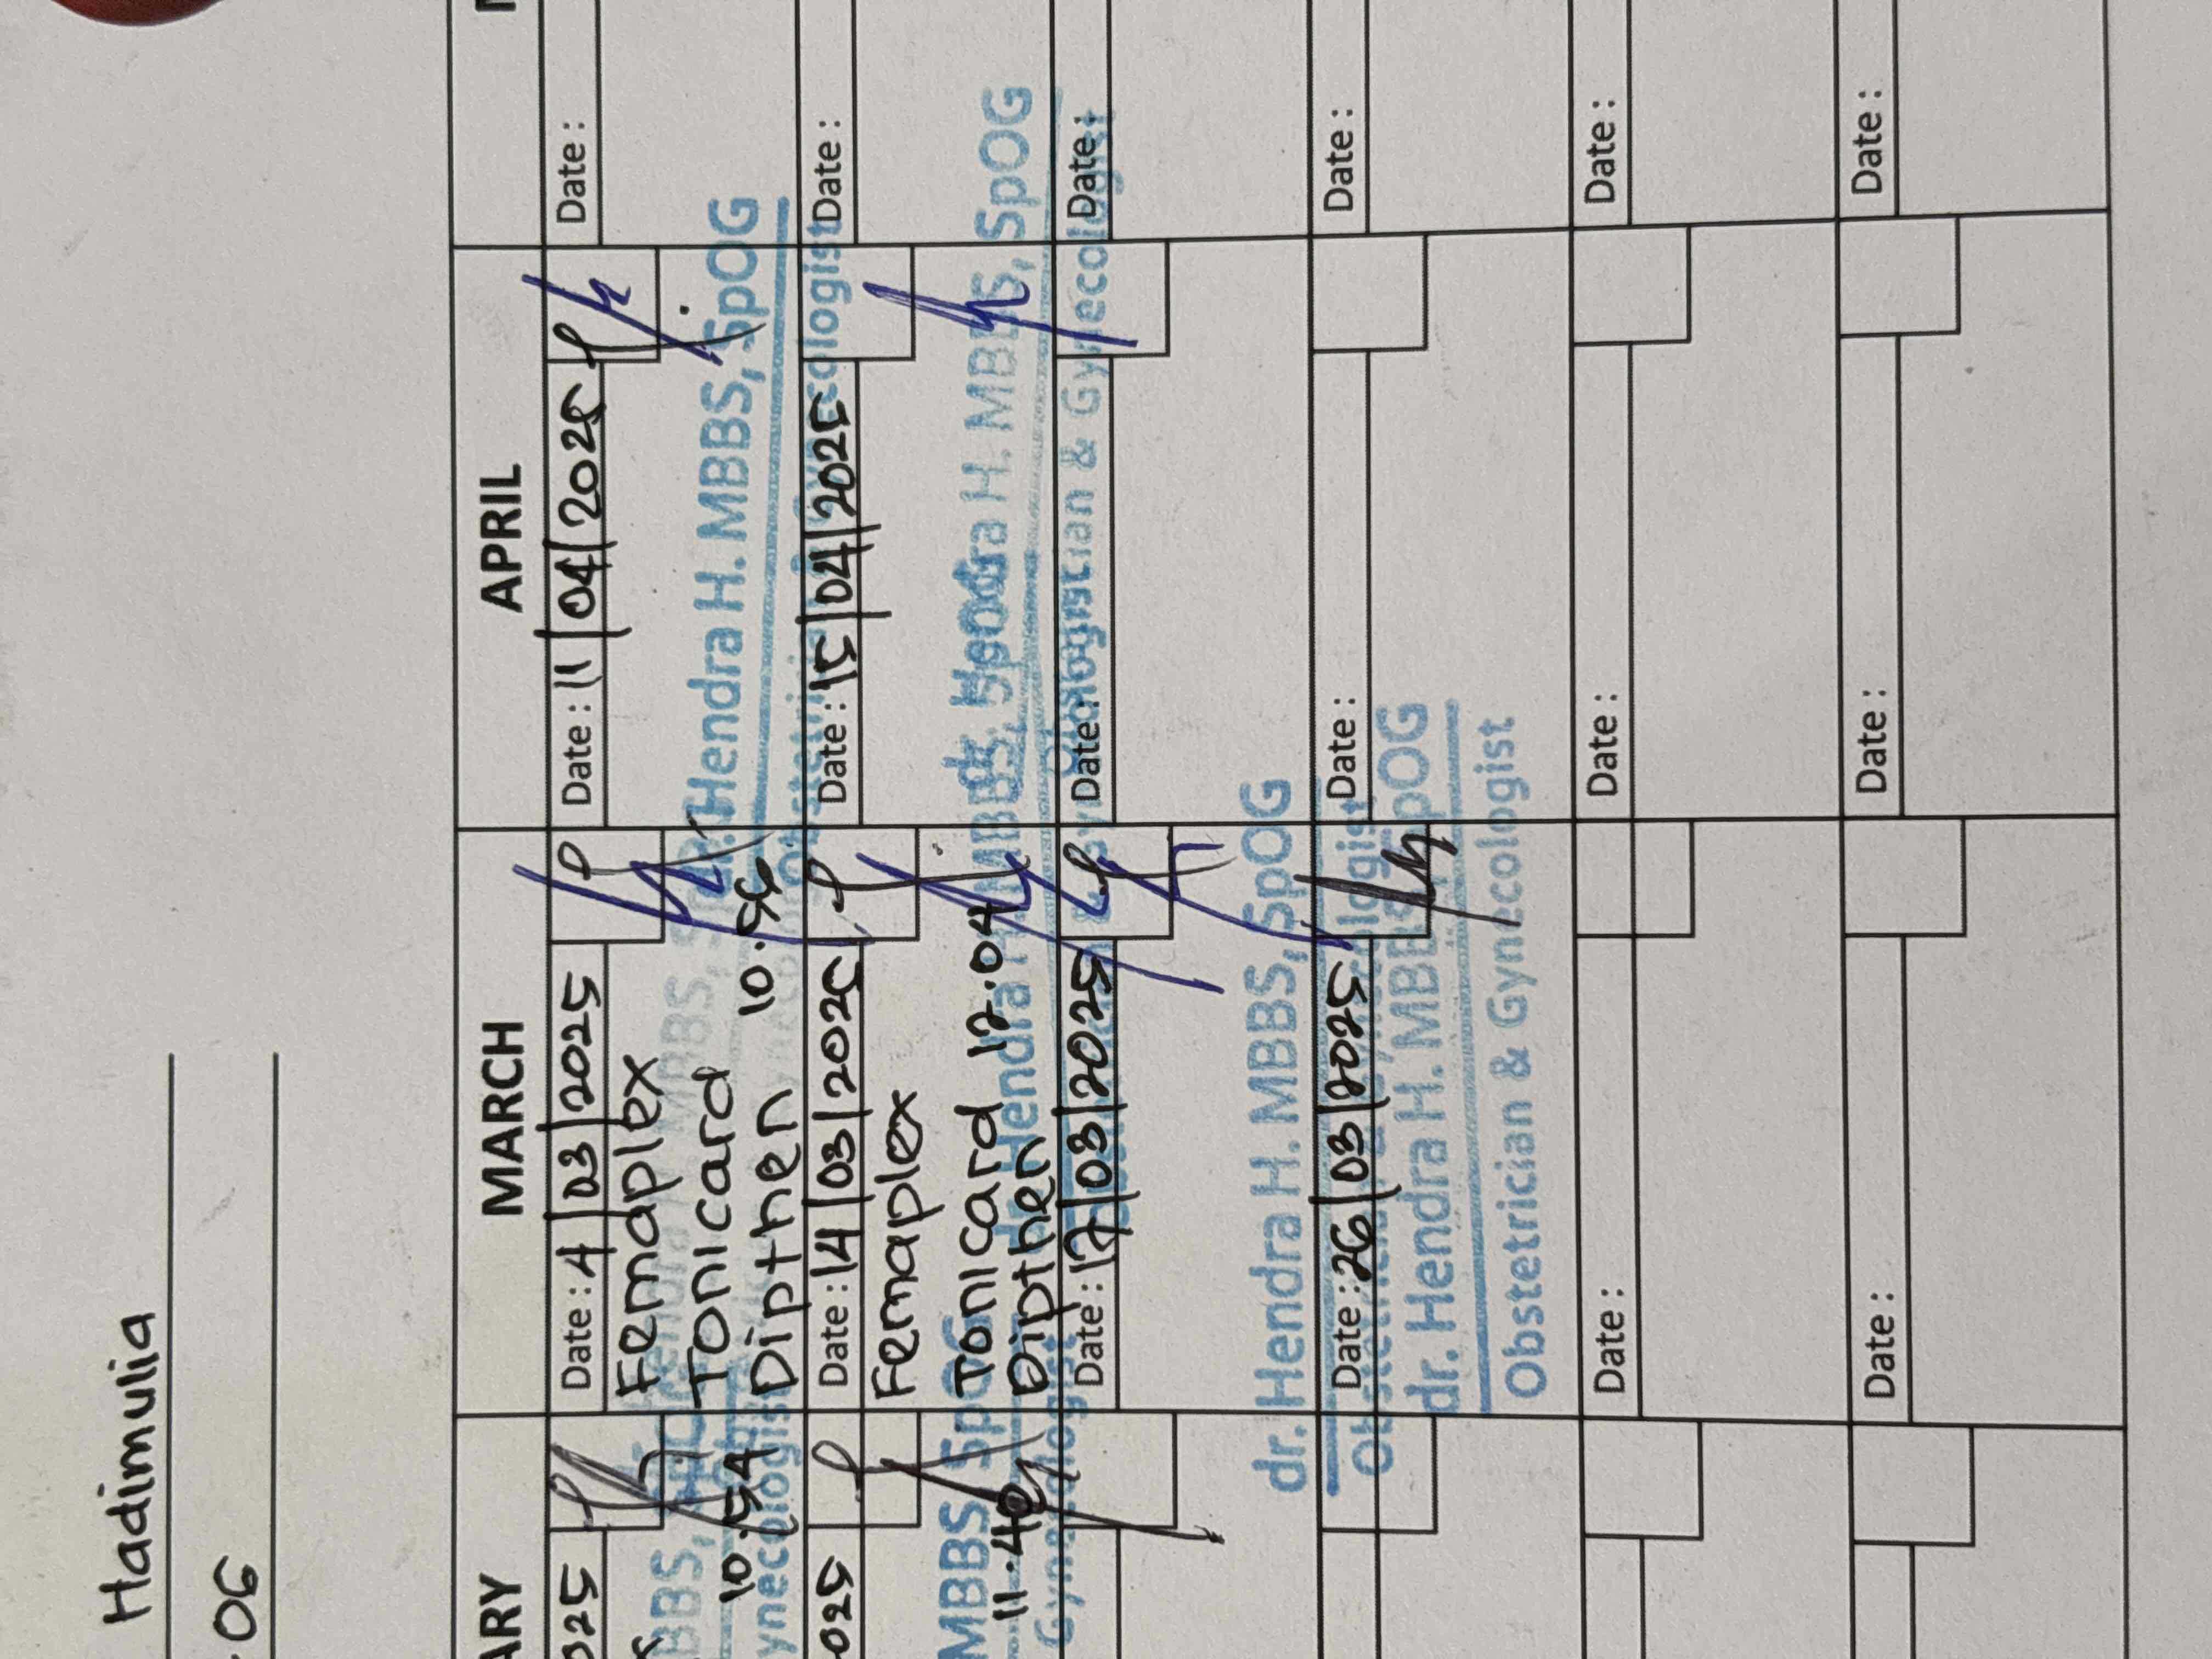 Hadimulia
OG
ARY
MARCH
APRIL
025
Date : 4 | 03 | 2025
Date : 11 | 04 | 2025
Date :
Femaplex
Tonicard
Dipthen 10.56
10.54
BBS,
ynecologist
dr. Hendra H. MBBS, SpOG
025
Date : 14 | 03 | 2025
Date : 15 | 04 | 2025
Date :
Femaplex
Tonicard 12.04
Dipthen
11.40
MBBS, SpOG
Gynecologist
dr. Hendra H. MBBS, SpOG
Obstetrician & Gynecologist
Date : 17 | 03 | 2025
Date :
Date :
dr. Hendra H. MBBS, SpOG
Obstetrician & Gynecologist
Date : 26 | 03 | 2025
Date :
Date :
dr. Hendra H. MBBS, SpOG
Obstetrician & Gynecologist
Date :
Date :
Date :
Date :
Date :
Date :